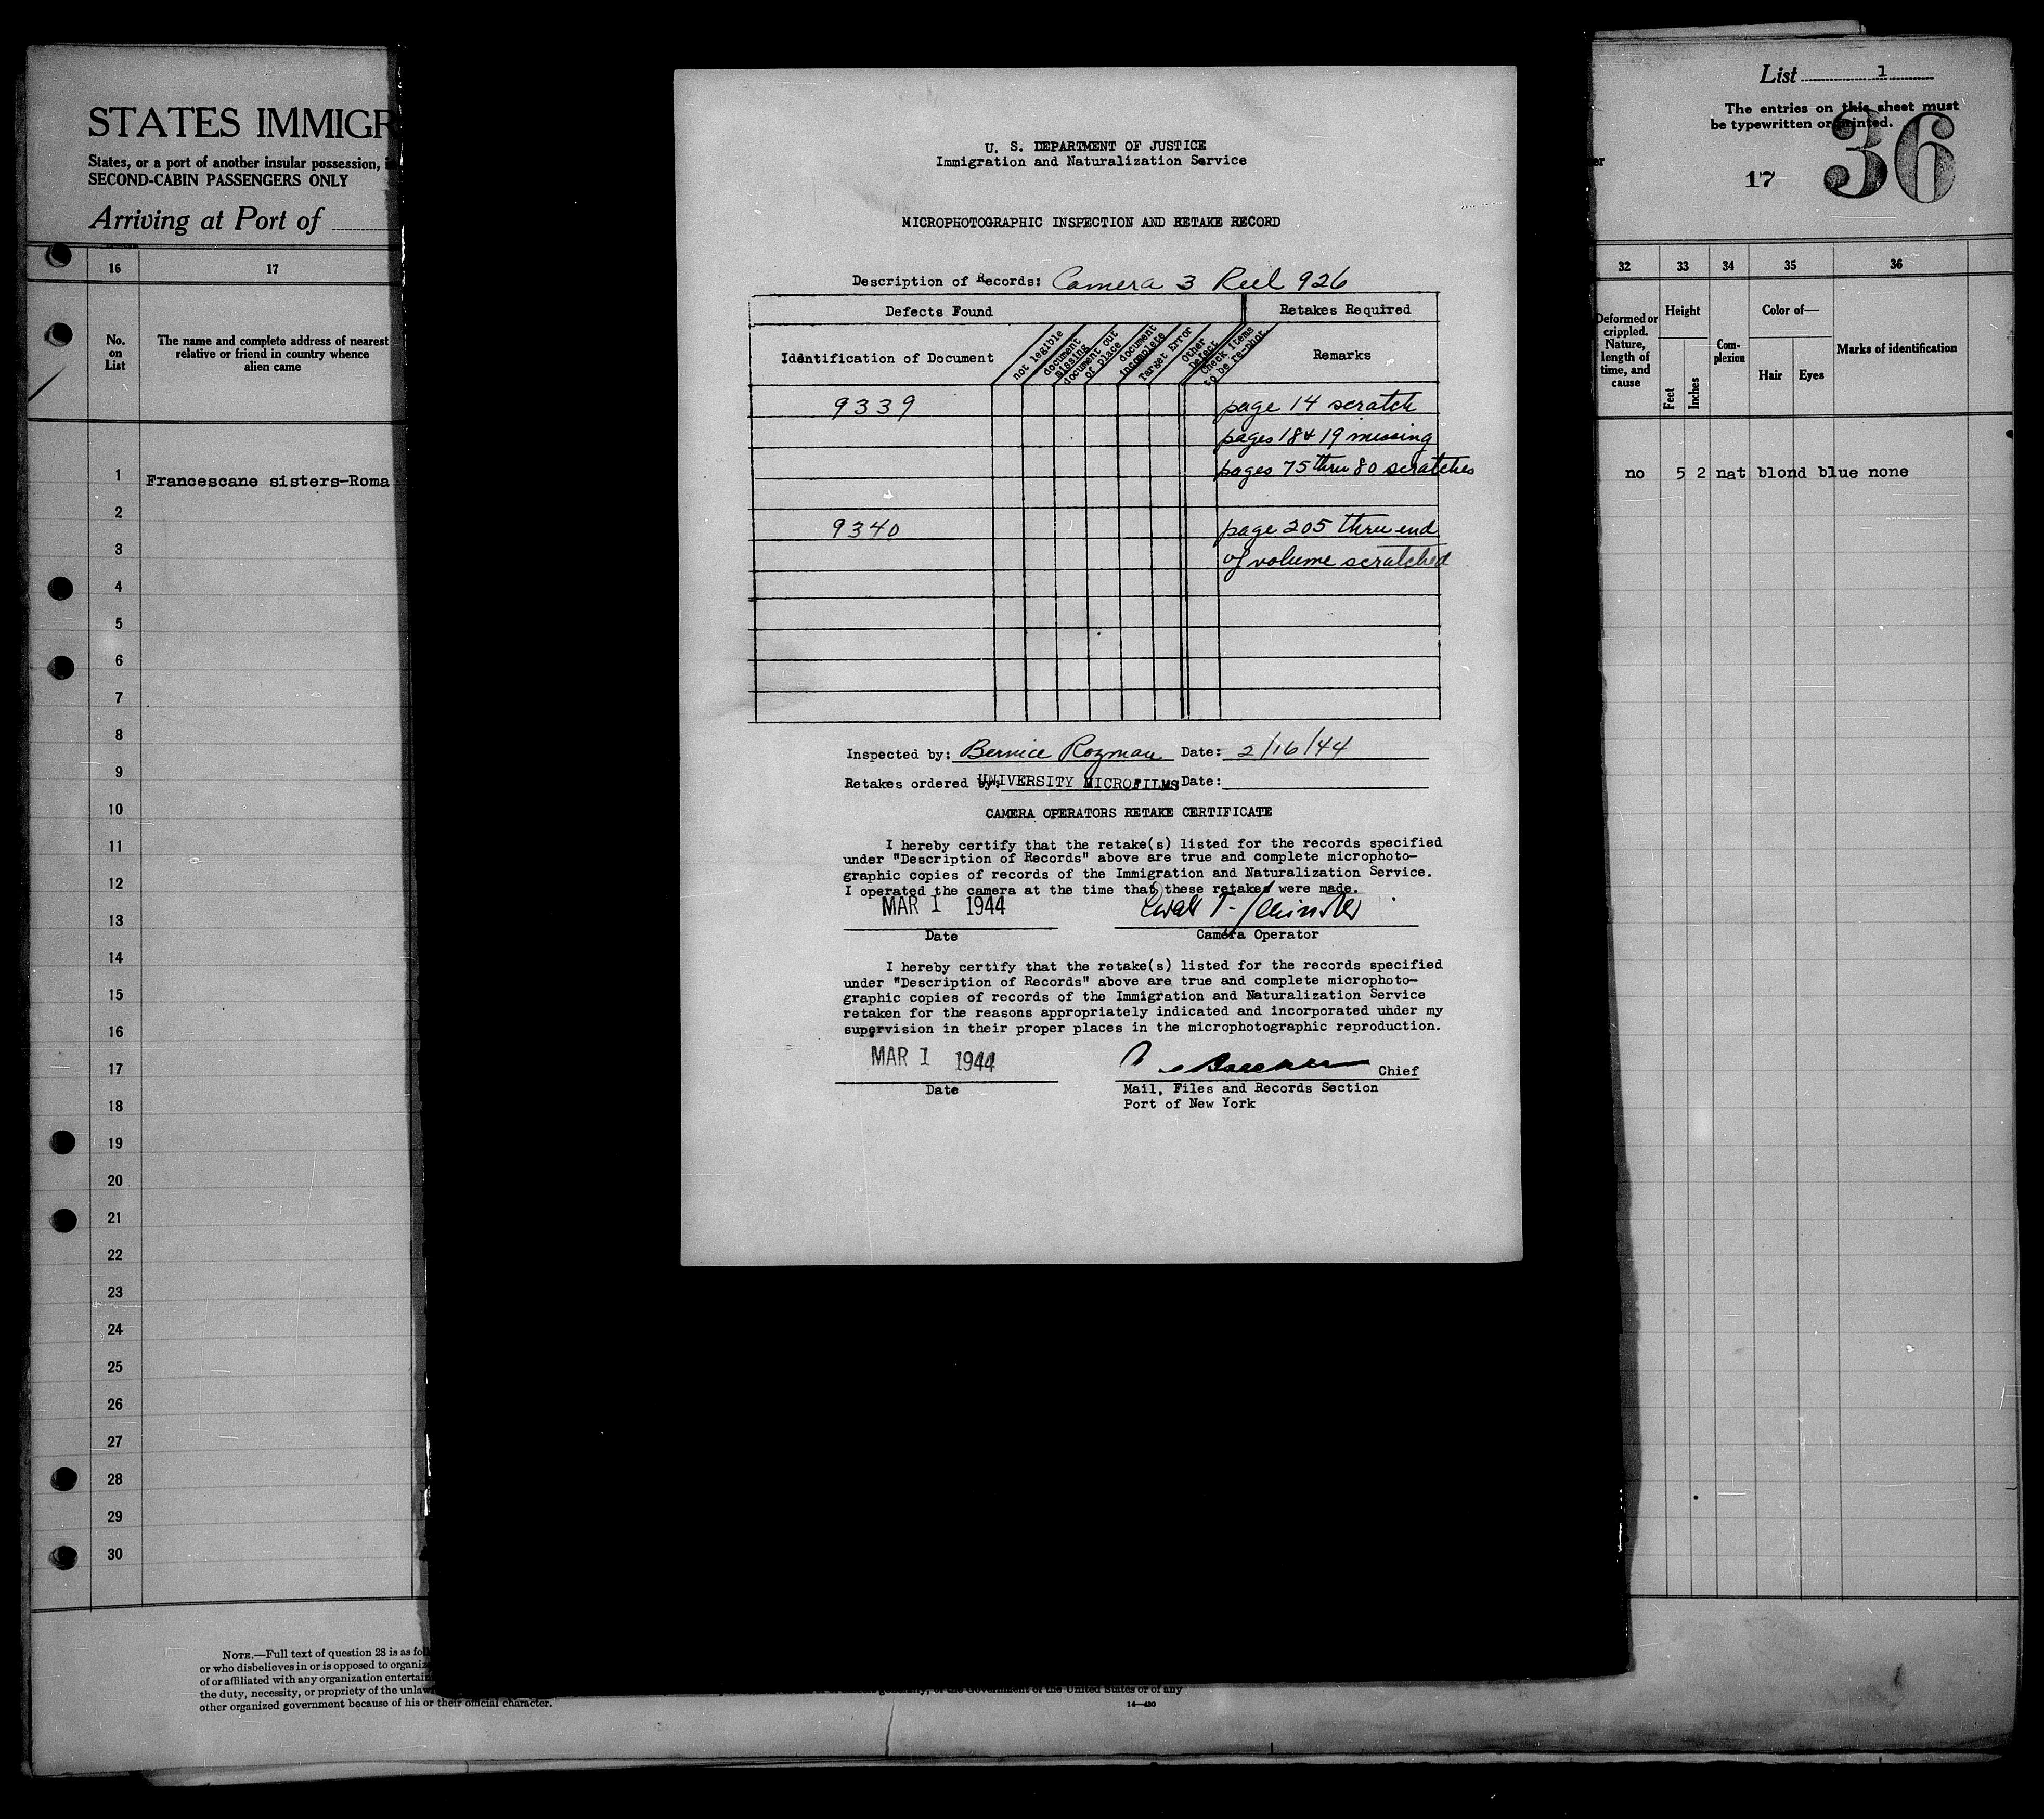 STATES IMMIGR
States, or a port of another insular possession,
SECOND-CABIN PASSENGERS ONLY
Arriving at Port of
16 17
No. on List
The name and complete address of nearest
relative or friend in country whence
alien came
1 Francescane sisters-Roma
2
3
4
5
6
7
8
9
10
11
12
13
14
15
16
17
18
19
20
21
22
23
24
25
26
27
28
29
30
NOTE.—Full text of question 28 is as
or who disbelieves in or is opposed to
of or affiliated with any organization
the duty, necessity, or propriety of the
other organized government because of his or their official character.
Government of the United States or of any
14—430
U. S. DEPARTMENT OF JUSTICE
Immigration and Naturalization Service
MICROPHOTOGRAPHIC INSPECTION AND RETAKE RECORD
Description of Records: Camera 3 Reel 926
Defects Found Retakes Required
Identification of Document
not legible
document missing
document out of place
document incomplete
Target Error
Other Defect
Check items to be re-phot.
Remarks
9339 page 14 scratch
pages 18 & 19 missing
pages 75 thru 80 scratches
9340 page 205 thru end
of volume scratched
Inspected by: Bernice Rozman Date: 2/16/44
Retakes ordered by: UNIVERSITY MICROFILMS Date:
CAMERA OPERATORS RETAKE CERTIFICATE
I hereby certify that the retake(s) listed for the records specified
under "Description of Records" above are true and complete microphoto-
graphic copies of records of the Immigration and Naturalization Service.
I operated the camera at the time that these retakes were made.
MAR 1 1944
Date Camera Operator
I hereby certify that the retake(s) listed for the records specified
under "Description of Records" above are true and complete microphoto-
graphic copies of records of the Immigration and Naturalization Service
retaken for the reasons appropriately indicated and incorporated under my
supervision in their proper places in the microphotographic reproduction.
MAR 1 1944
Chief
Date Mail, Files and Records Section
Port of New York
List 1
The entries on this sheet must
be typewritten or printed.
17 36
32 33 34 35 36
Deformed or
crippled.
Nature,
length of
time, and
cause
Height
Feet Inches
Com-
plexion
Color of—
Hair Eyes
Marks of identification
no 5 2 nat blond blue none